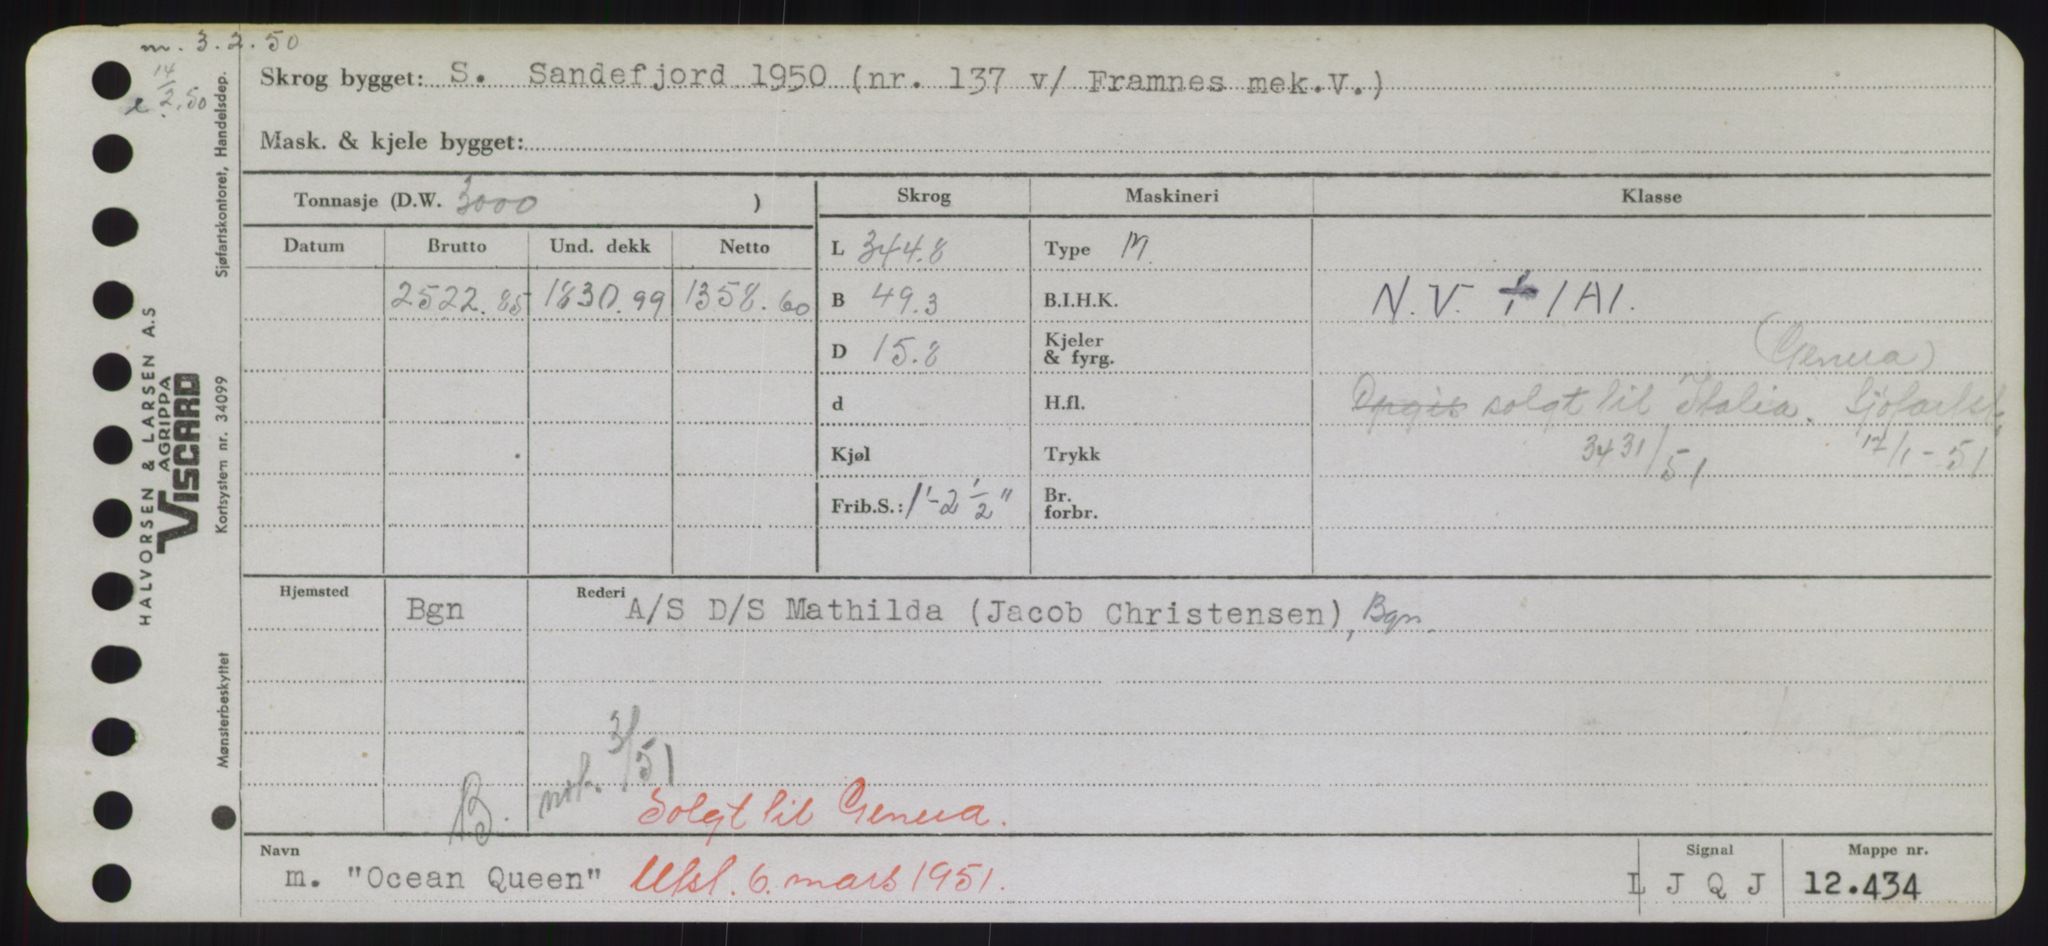 m. 3.2.50
14/2.50
Skrog bygget: S. Sandefjord 1950 (nr. 137 v/ Framnes mek.V.)
Mask. & kjele bygget:
Tonnasje (D.W. 3000 )
Skrog Maskineri Klasse
Datum Brutto Und. dekk Netto
L 344.8 Type M.
2522.85 1830.99 1358.60
B 49.3 B.I.H.K. N.V. + 1A1.
D 15.8 Kjeler & fyrg. (Genua)
d H.fl. solgt til Italia. Sjøfartst.
Kjøl Trykk 3431/51 17/1-51
Frib.S.: 1'-2 1/2" Br. forbr.
Hjemsted Bgn Rederi A/S D/S Mathilda (Jacob Christensen), Bgn.
B. not. 3/51
Solgt til Genua.
Navn m. "Ocean Queen" Utsl. 6. mars 1951.
Signal L J Q J Mappe nr. 12.434
Sjøfartskontoret, Handelsdep.
HALVORSEN & LARSEN A.S
AGRIPPA
VISCARD
Kortsystem nr. 34099
Mønsterbeskyttet